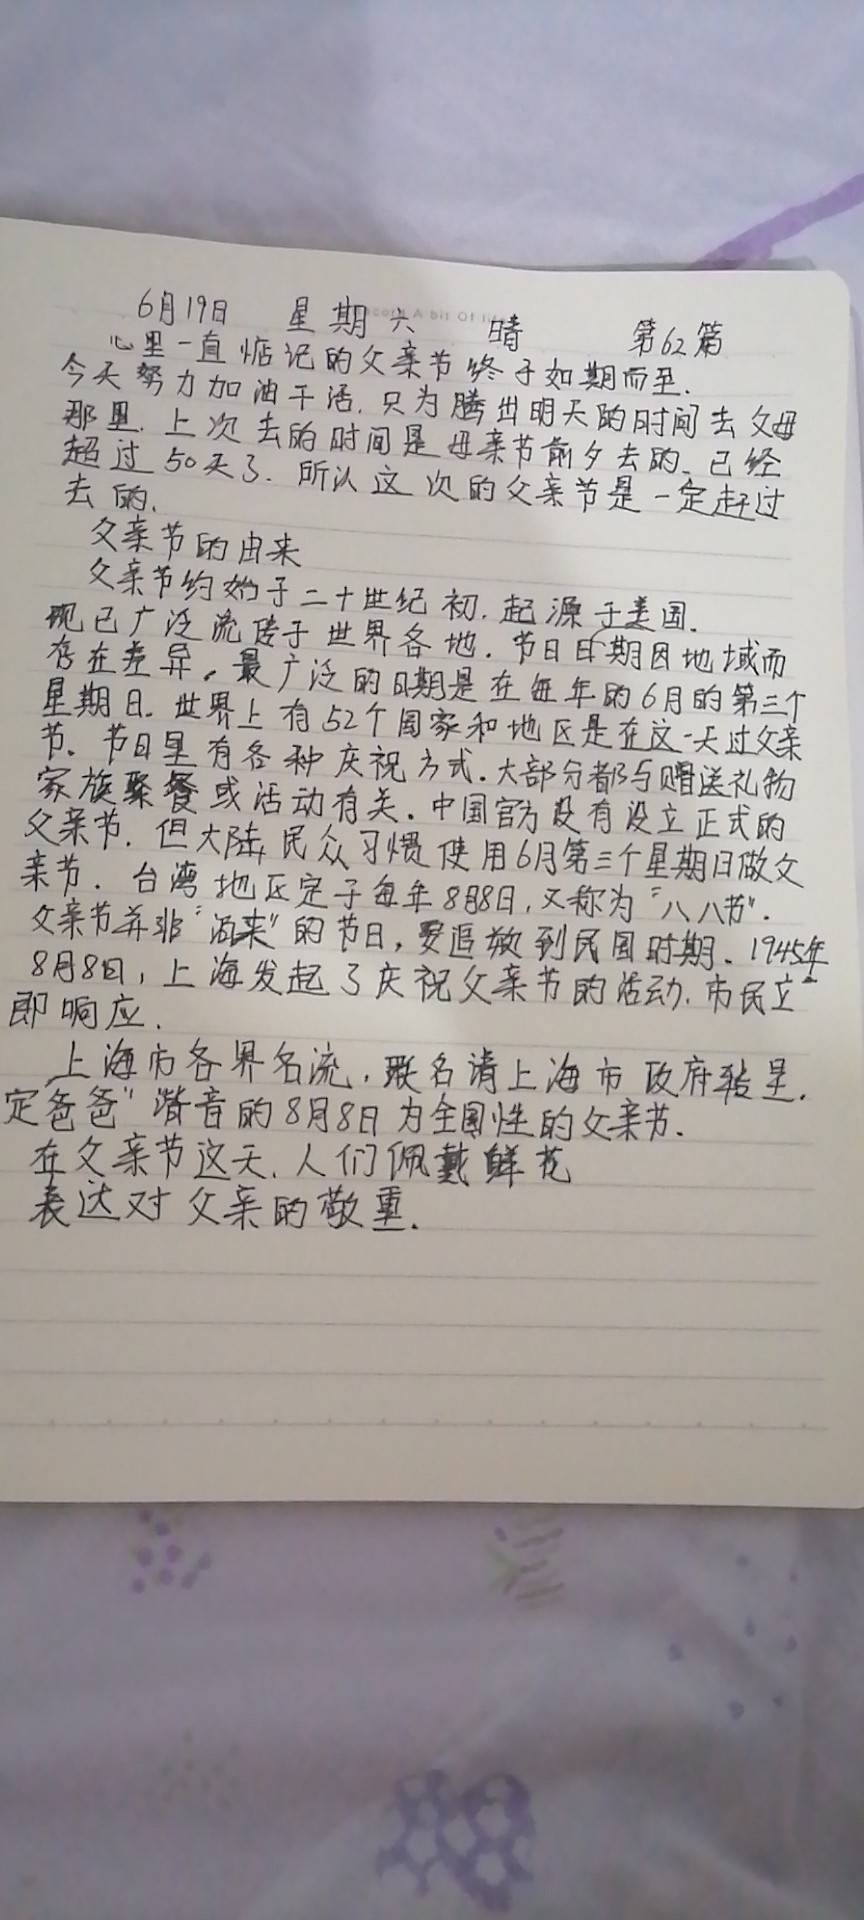 6月19日 星期六 晴 第62篇
心里一直惦记的父亲节终于如期而至.
今天努力加油干活.只为腾出明天的时间去父母
那里.上次去的时间是母亲节前夕去的、已经
超过50天了.所认这次的父亲节是一定赶过
去的.
父亲节的由来
父亲节约始于二十世纪初.起源于美国.
现已广泛流传于世界各地.节日日期因地域而
存在差异。最广泛的日期是在每年的6月的第三个
星期日.世界上有52个国家和地区是在这一天过父亲
节。节日里有各种庆祝方式.大部分都与赠送礼物
家族聚餐或活动有关.中国官方没有设立正式的
父亲节.但大陆民众习惯使用6月第三个星期日做父
亲节.台湾地区定于每年8月8日,又称为"八八节".
父亲节并非"泊来"的节日,要追放到民国时期.1945年
8月8日,上海发起了庆祝父亲节的活动.市民立
即响应.
上海市各界名流.联名请上海市政府转呈.
定爸爸"谐音的8月8日为全国性的父亲节.
在父亲节这天.人们佩戴鲜花
表达对父亲的敬重.